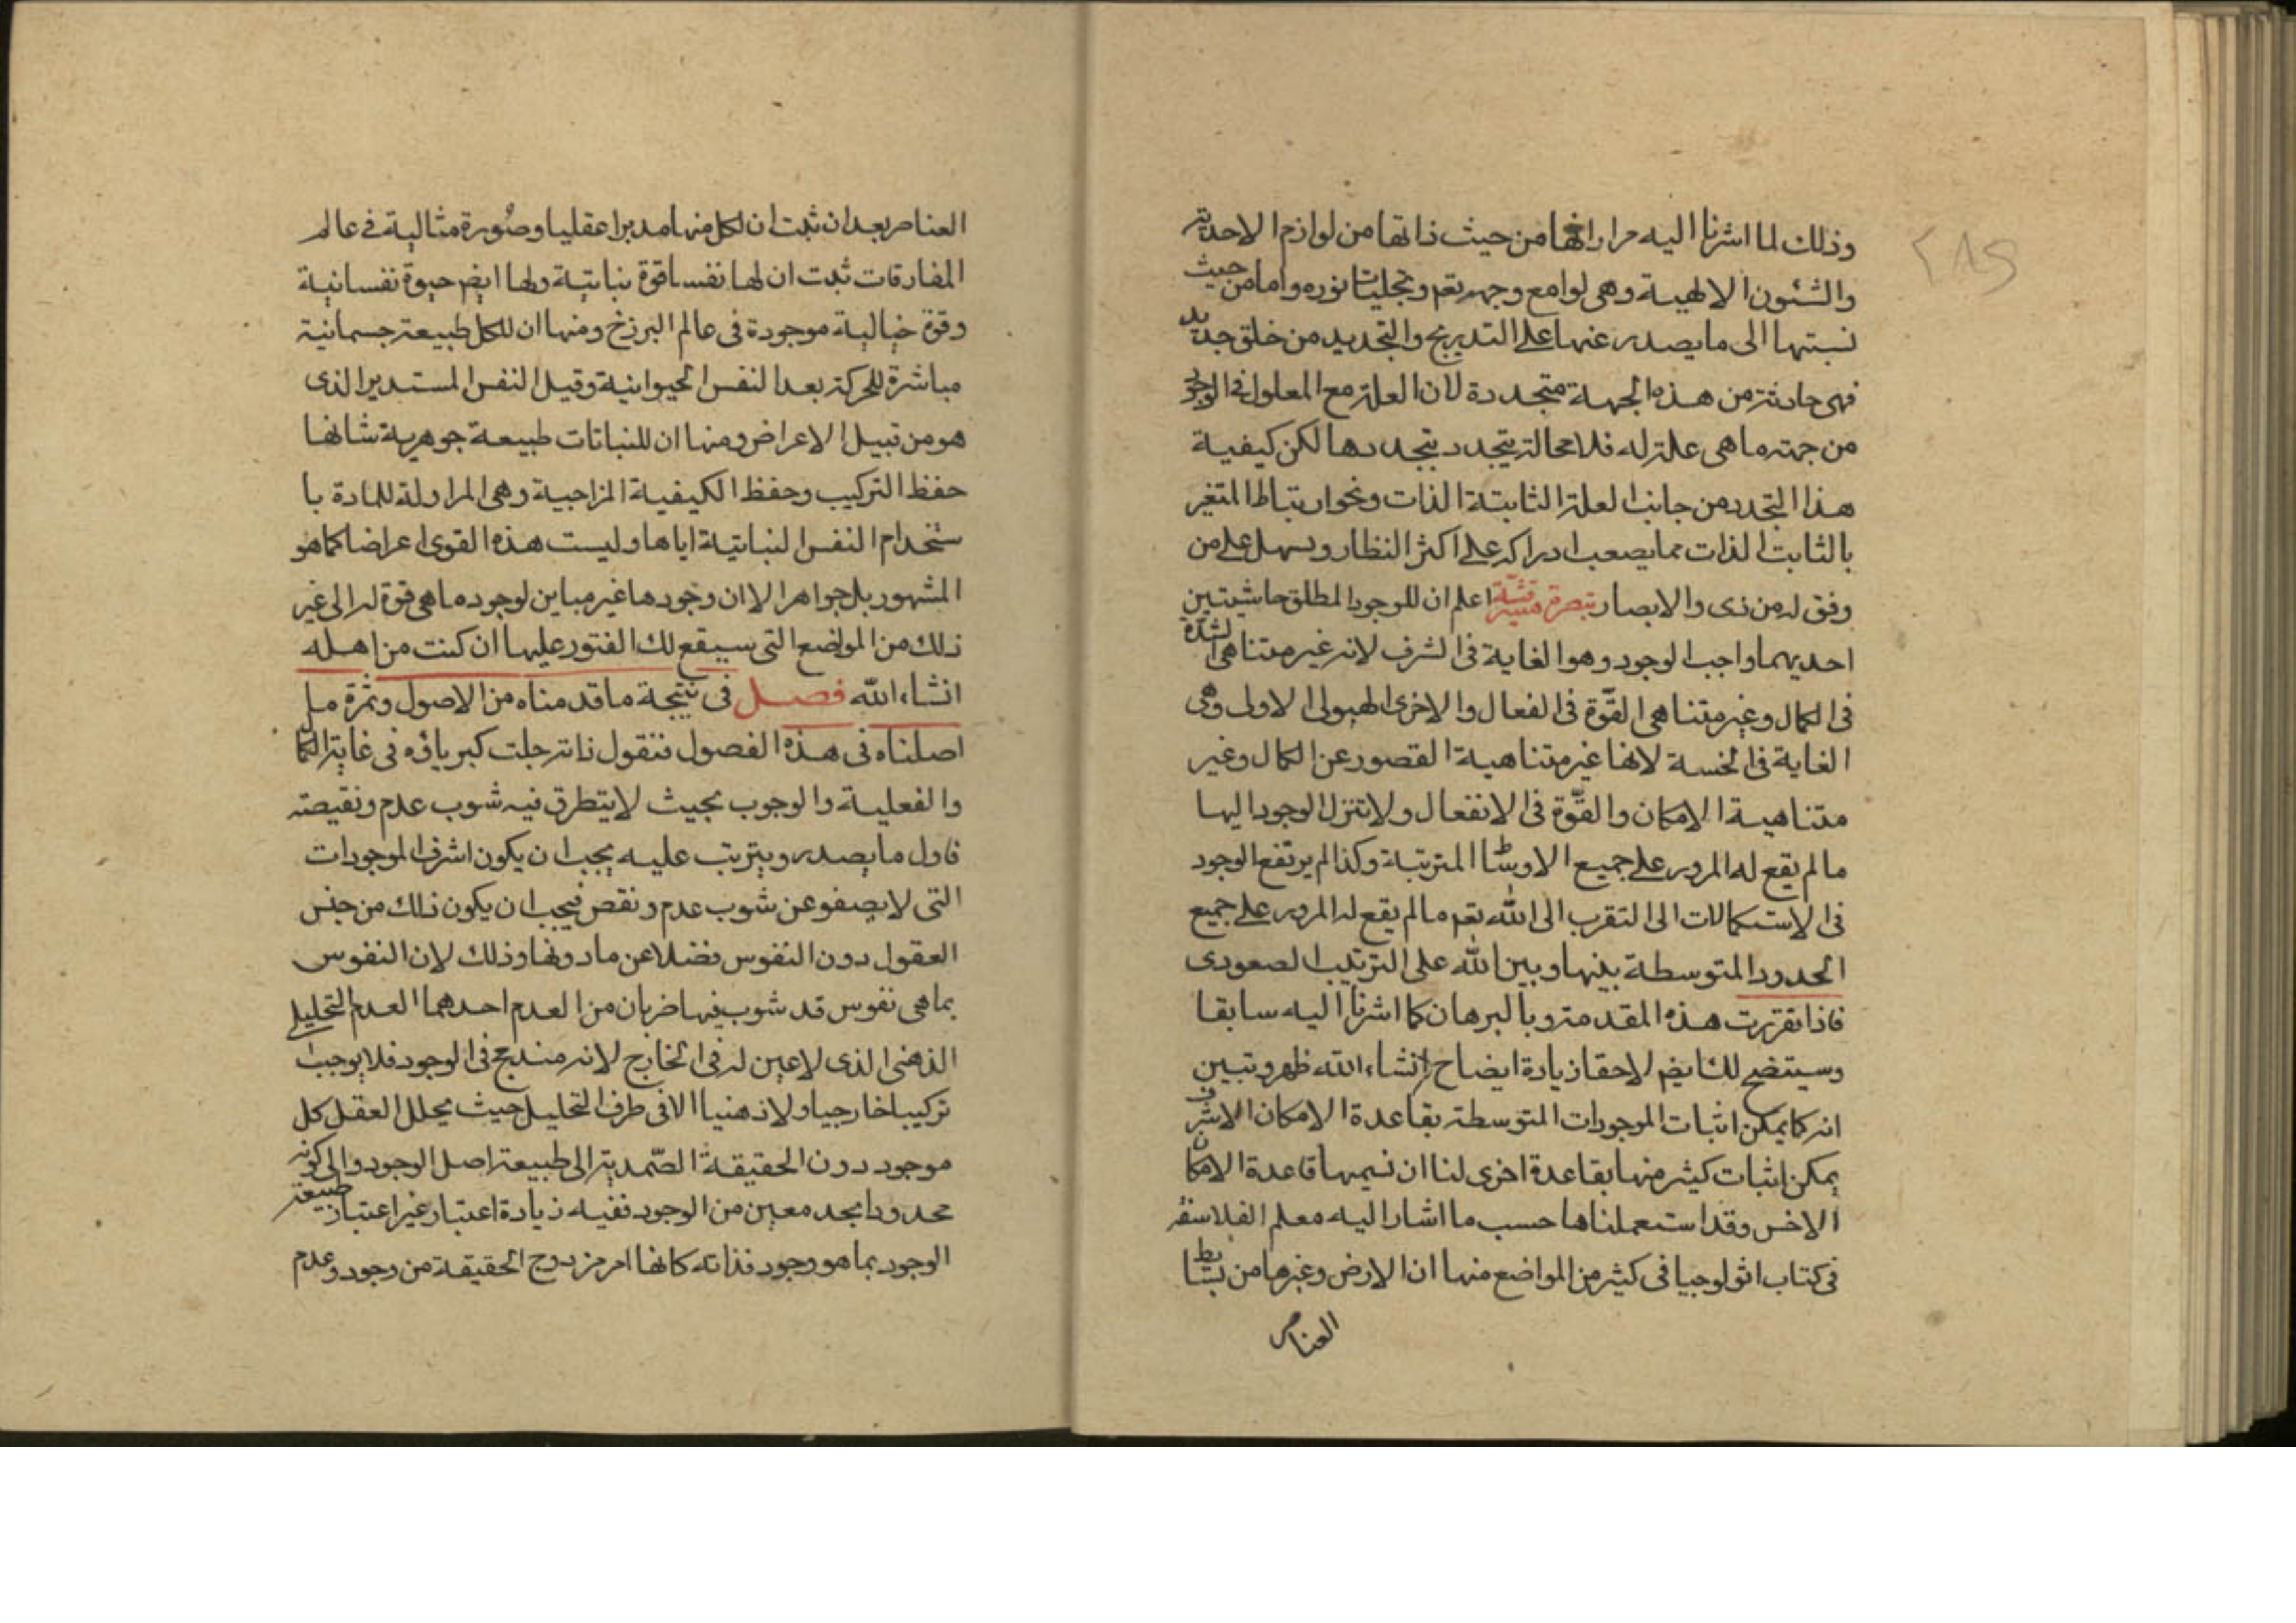 وذلك لما اشرنا اليه مرارا انها من حيث ذاتها من لوازم الاحدية
والشئون الالهية وهى لوامع وجهه تعم وتجليات نوره واما من حيث
نسبتها الى ما يصدر عنها على التدريج والتجديد من خلق جديد
فهى حادثة من هذه الجهة متجددة لان العلة مع المعلول فى الوجود
من جهة ما هى علة له فلا محالة يتجدد بتجددها لكن كيفية
هذا التجدد من جانب العلة الثابتة الذات ونحو ارتباط المتغير
بالثابت الذات مما يصعب ادراكه على اكثر النظار ويسهل على من
وفق له من ذى والابصار تبصرة اعلم ان للوجود المطلق حاشيتين
احديهما واجب الوجود وهو الغاية فى الشرف لانه غير متناهى الشدة
فى الكمال وغير متناهى القوّة فى الفعال والاخرى الهيولى الاولى وهى
الغاية فى الخسة لانها غير متناهية القصور عن الكمال وغير
متناهية الامكان والقوّة فى الانفعال ولا تنزل الوجود اليها
ما لم يقع له المرور على جميع الاوساط المترتبة وكذا لم يرتفع الوجود
فى الاستكمالات الى التقرب الى الله تعم ما لم يقع له المرور على جميع
الحدود المتوسطة بينها وبين الله على الترتيب الصعودى
فاذا تقررت هذه المقدمة وبالبرهان كما اشرنا اليه سابقا
وسيتضح لك ايضم لاحقا زيادة ايضاح انشاء الله ظهر وتبين
انه كما يمكن اثبات الموجودات المتوسطة بقاعدة الامكان الاشرف
يمكن اثبات كثير منها بقاعدة اخرى لنا ان نسيمها قاعدة الامكان
الاخس وقد استعملناها حسب ما اشار اليه معلم الفلاسفة
فى كتاب اثولوجيا فى كثير من المواضع منها ان الارض وغيرها من بسائط
العناصر
العناصر بعد ان ثبت ان لكل منها مدبرا عقليا وصُورة مثالية فى عالم
المفارقات ثبت ان لها نفسا قوة نباتية ولها ايضم حيوة نفسانية
وقوة خيالية موجودة فى عالم البرزخ ومنها ان للكل طبيعة جسمانية
مباشرة للحركة بعد النفس الحيوانية وقيل النفس المستدير الذى
هو من قبيل الاعراض ومنها ان للنباتات طبيعة جوهرية شانها
حفظ التركيب وحفظ الكيفية المزاجية وهى المزاولة للمادة با
ستخدام النفس النباتية اياها وليست هذه القوى اعراضا كما هو
المشهور بل جواهر الا ان وجودها غير مباين لوجود ما هى قوة له الى غير
ذلك من المواضع التى سيقع لك الفتور عليها ان كنت من اهله
انشاء الله فصل فى نتيجة ما قدمناه من الاصول وثمرة ما
اصلناه فى هذه الفصول فنقول ذاته جلت كبرياؤه فى غاية الكمال
والفعلية والوجوب بحيث لا يتطرق فيه شوب عدم ونقيصة
فاول ما يصدر ويترتب عليه يجب ان يكون اشرف الموجودات
التى لا يصفو عن شوب عدم ونقص فيجب ان يكون ذلك من جنس
العقول دون النفوس فضلا عن ما دونها وذلك لان النفوس
بما هى نفوس قد شوب فيها ضربان من العدم احدهما العدم التحليلى
الذهنى الذى لا عين له فى الخارج لانه مندمج فى الوجود فلا يوجب
تركيبا خارجيا ولا ذهنيا الا فى ظرف التحليل حيث يحلل العقل كل
موجود دون الحقيقة الصّمدية الى طبيعة اصل الوجود والى كونه
محدودا بحد معين من الوجود ففيه زيادة اعتبار غير اعتبار طبيعة
الوجود بما هو وجود فذاته كانها امر مزدوج الحقيقة من وجود وعدم